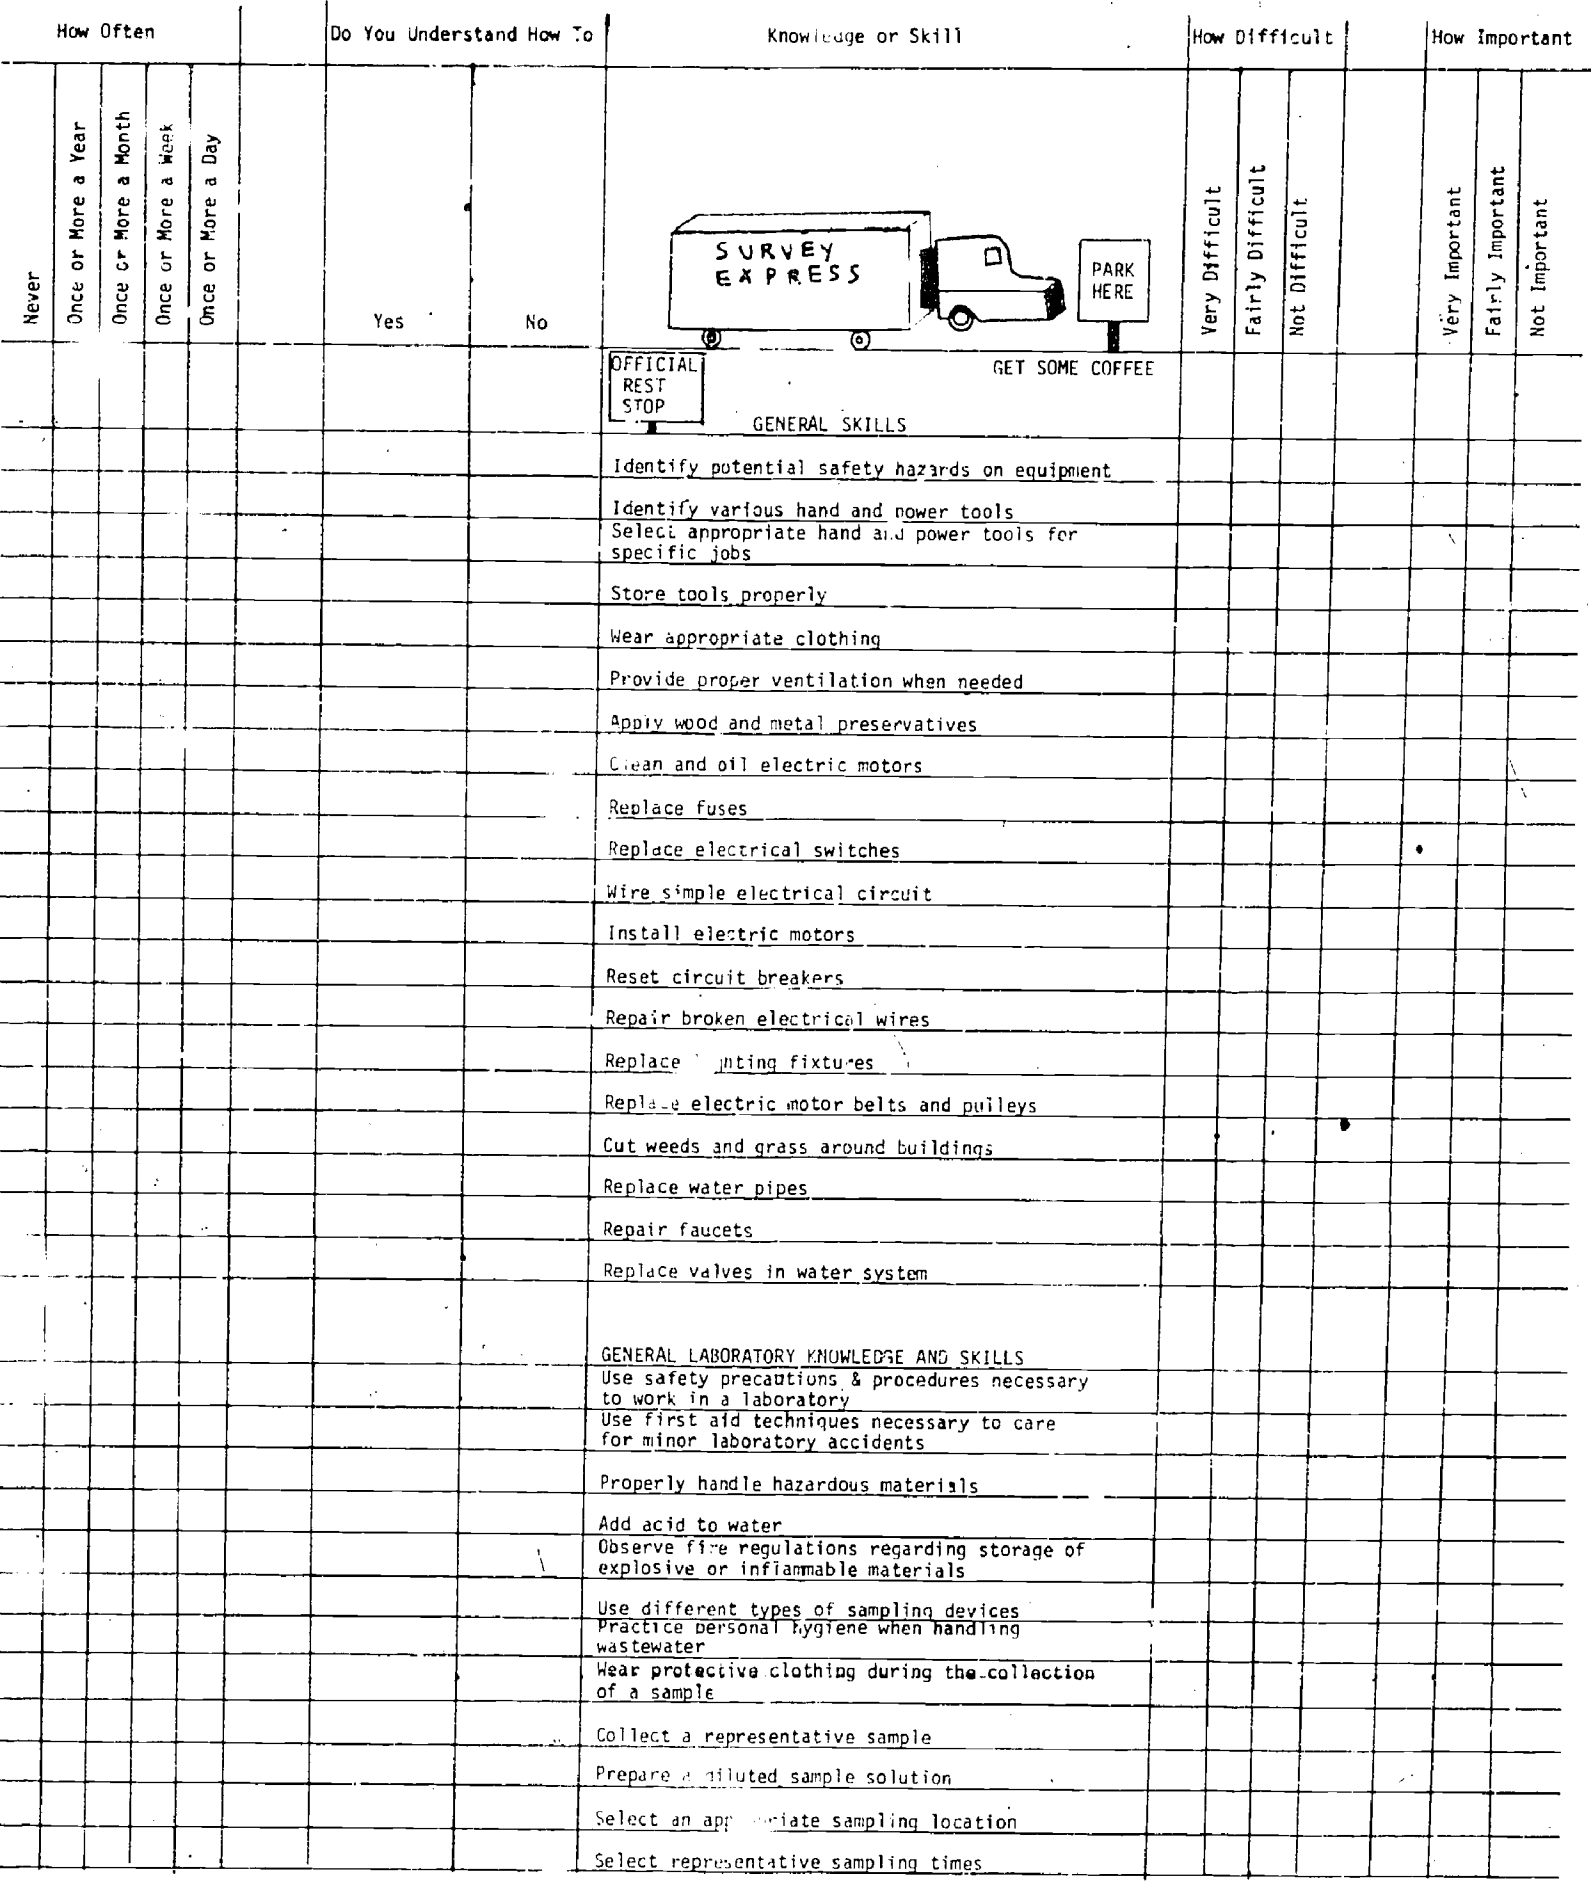 How Often
Do You Understand How To
Knowledge or Skill
How Difficult
How Important
Never
Once or More a Year
Once or More a Month
Once or More a Week
Once or More a Day
Yes
No
SURVEY
EXPRESS
PARK
HERE
Very Difficult
Fairly Difficult
Not Difficult
Very Important
Fairly Important
Not Important
OFFICIAL
REST
STOP
GET SOME COFFEE
GENERAL SKILLS
Identify potential safety hazards on equipment
Identify various hand and power tools
Select appropriate hand and power tools for
specific jobs
Store tools properly
Wear appropriate clothing
Provide proper ventilation when needed
Apply wood and metal preservatives
Clean and oil electric motors
Replace fuses
Replace electrical switches
Wire simple electrical circuit
Install electric motors
Reset circuit breakers
Repair broken electrical wires
Replace fixtures
Replace electric motor belts and pulleys
Cut weeds and grass around buildings
Replace water pipes
Repair faucets
Replace valves in water system
GENERAL LABORATORY KNOWLEDGE AND SKILLS
Use safety precautions & procedures necessary
to work in a laboratory
Use first aid techniques necessary to care
for minor laboratory accidents
Properly handle hazardous materials
Add acid to water
Observe fire regulations regarding storage of
explosive or inflammable materials
Use different types of sampling devices
Practice personal hygiene when handling
wastewater
Wear protective clothing during the collection
of a sample
Collect a representative sample
Prepare a diluted sample solution
Select an sampling location
Select representative sampling times